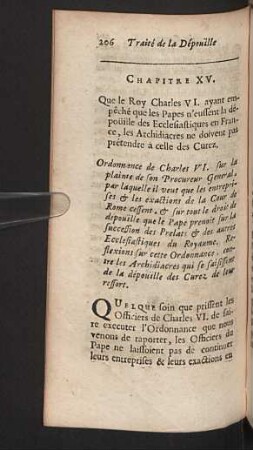 206 Traité de la Dépouille
CHAPITRE XV.
Que le Roy Charles VI. ayant em-
pêché que les Papes n'eussent la dé-
pouille des Ecclesiastiques en Fran-
ce, les Archidiacres ne doivent pas
prétendre à celle des Curez.
Ordonnance de Charles VI. sur la
plainte de son Procureur General,
par laquelle il veut que les entrepri-
ses & les exactions de la Cour de
Rome cessent, & sur tout le droit de
dépouille que le Pape prenoit sur la
succession des Prelats & des autres
Ecclesiastiques du Royaume. Re-
flexions sur cette Ordonnance, con-
tre les Archidiacres qui se saisissent
de la dépouille des Curez de leur
ressort.
QUELQUE soin que prissent les
Officiers de Charles VI. de fai-
re executer l'Ordonnance que nous
venons de raporter, les Officiers du
Pape ne laissoient pas de continuer
leurs entreprises & leurs exactions en